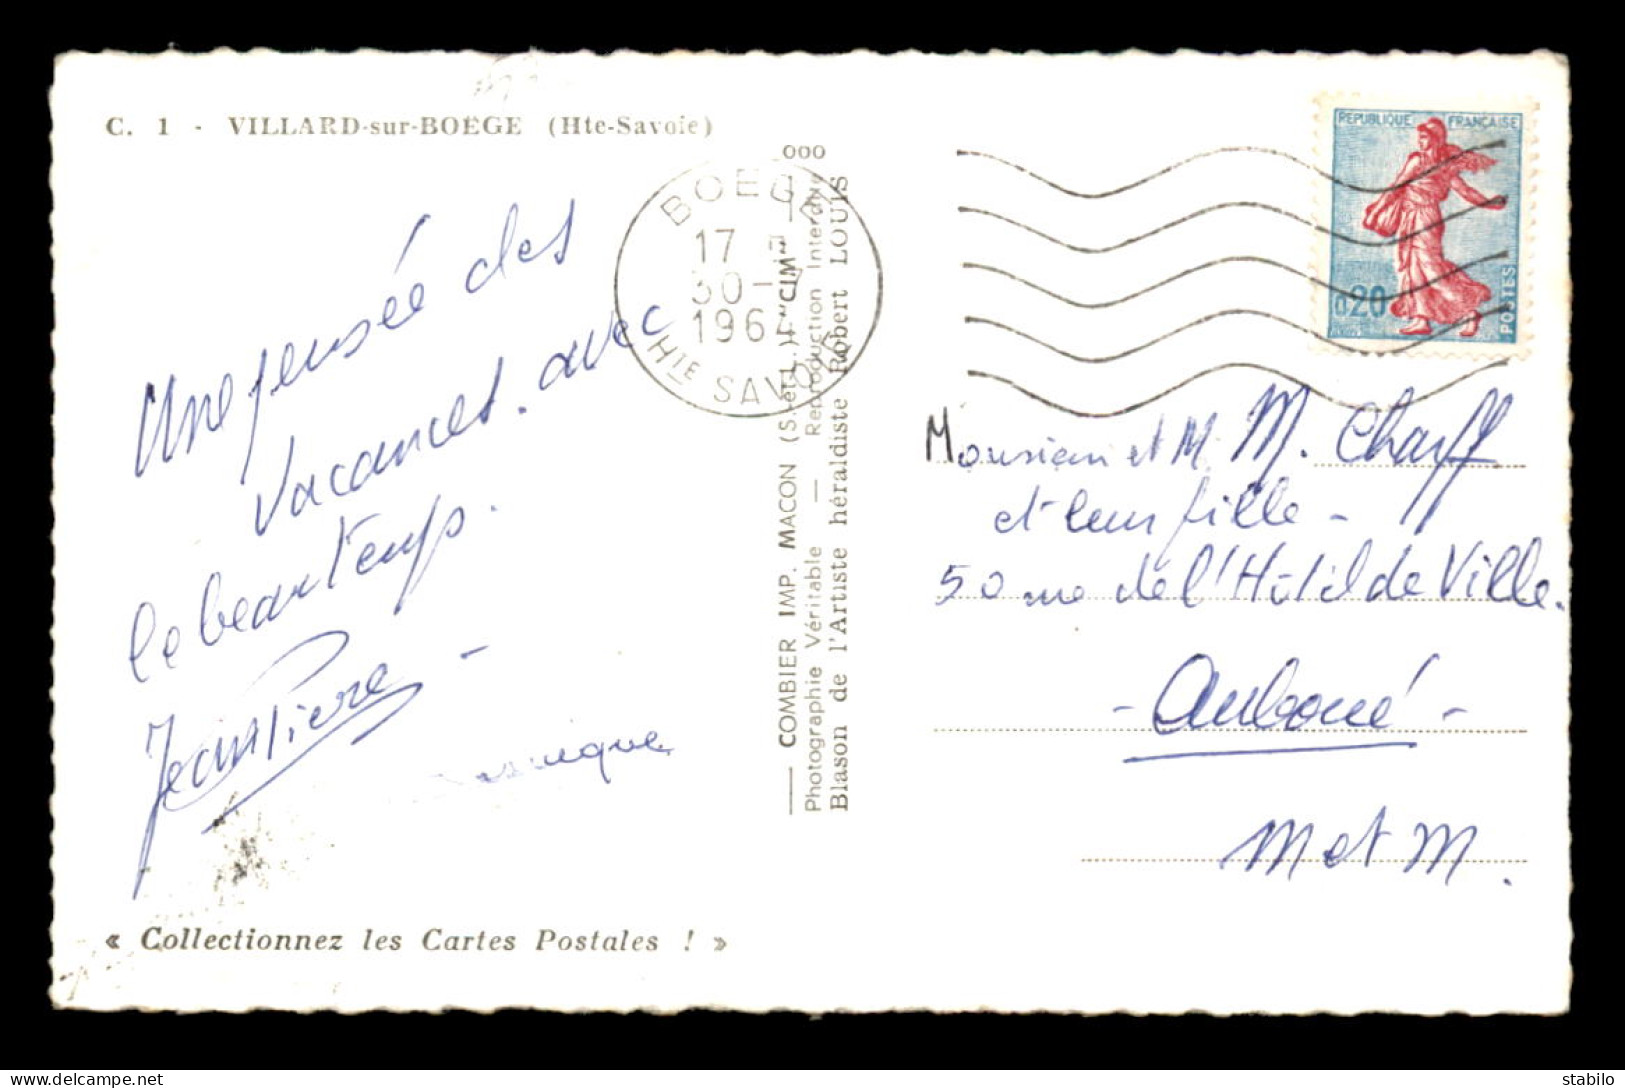 C. 1 - VILLARD-sur-BOËGE (Hte-Savoie)
Une pensée des
vacances. avec
le beau temps.
Jean Pierre
« Collectionnez les Cartes Postales ! »
ooo
BOEGE
17
30-7
196
HTE SAVOIE
COMBIER IMP. MACON (S.-et-L.) "CIM"
Photographie Véritable — Reproduction Interdite
Blason de l'Artiste héraldiste Robert LOUIS
REPUBLIQUE FRANÇAISE
0,20
POSTES
Monsieur et M. M. Charff
et leur fille -
50 rue de l'Hôtel de Ville.
- Auboué -
M et M.
delcampe.net
stabilo